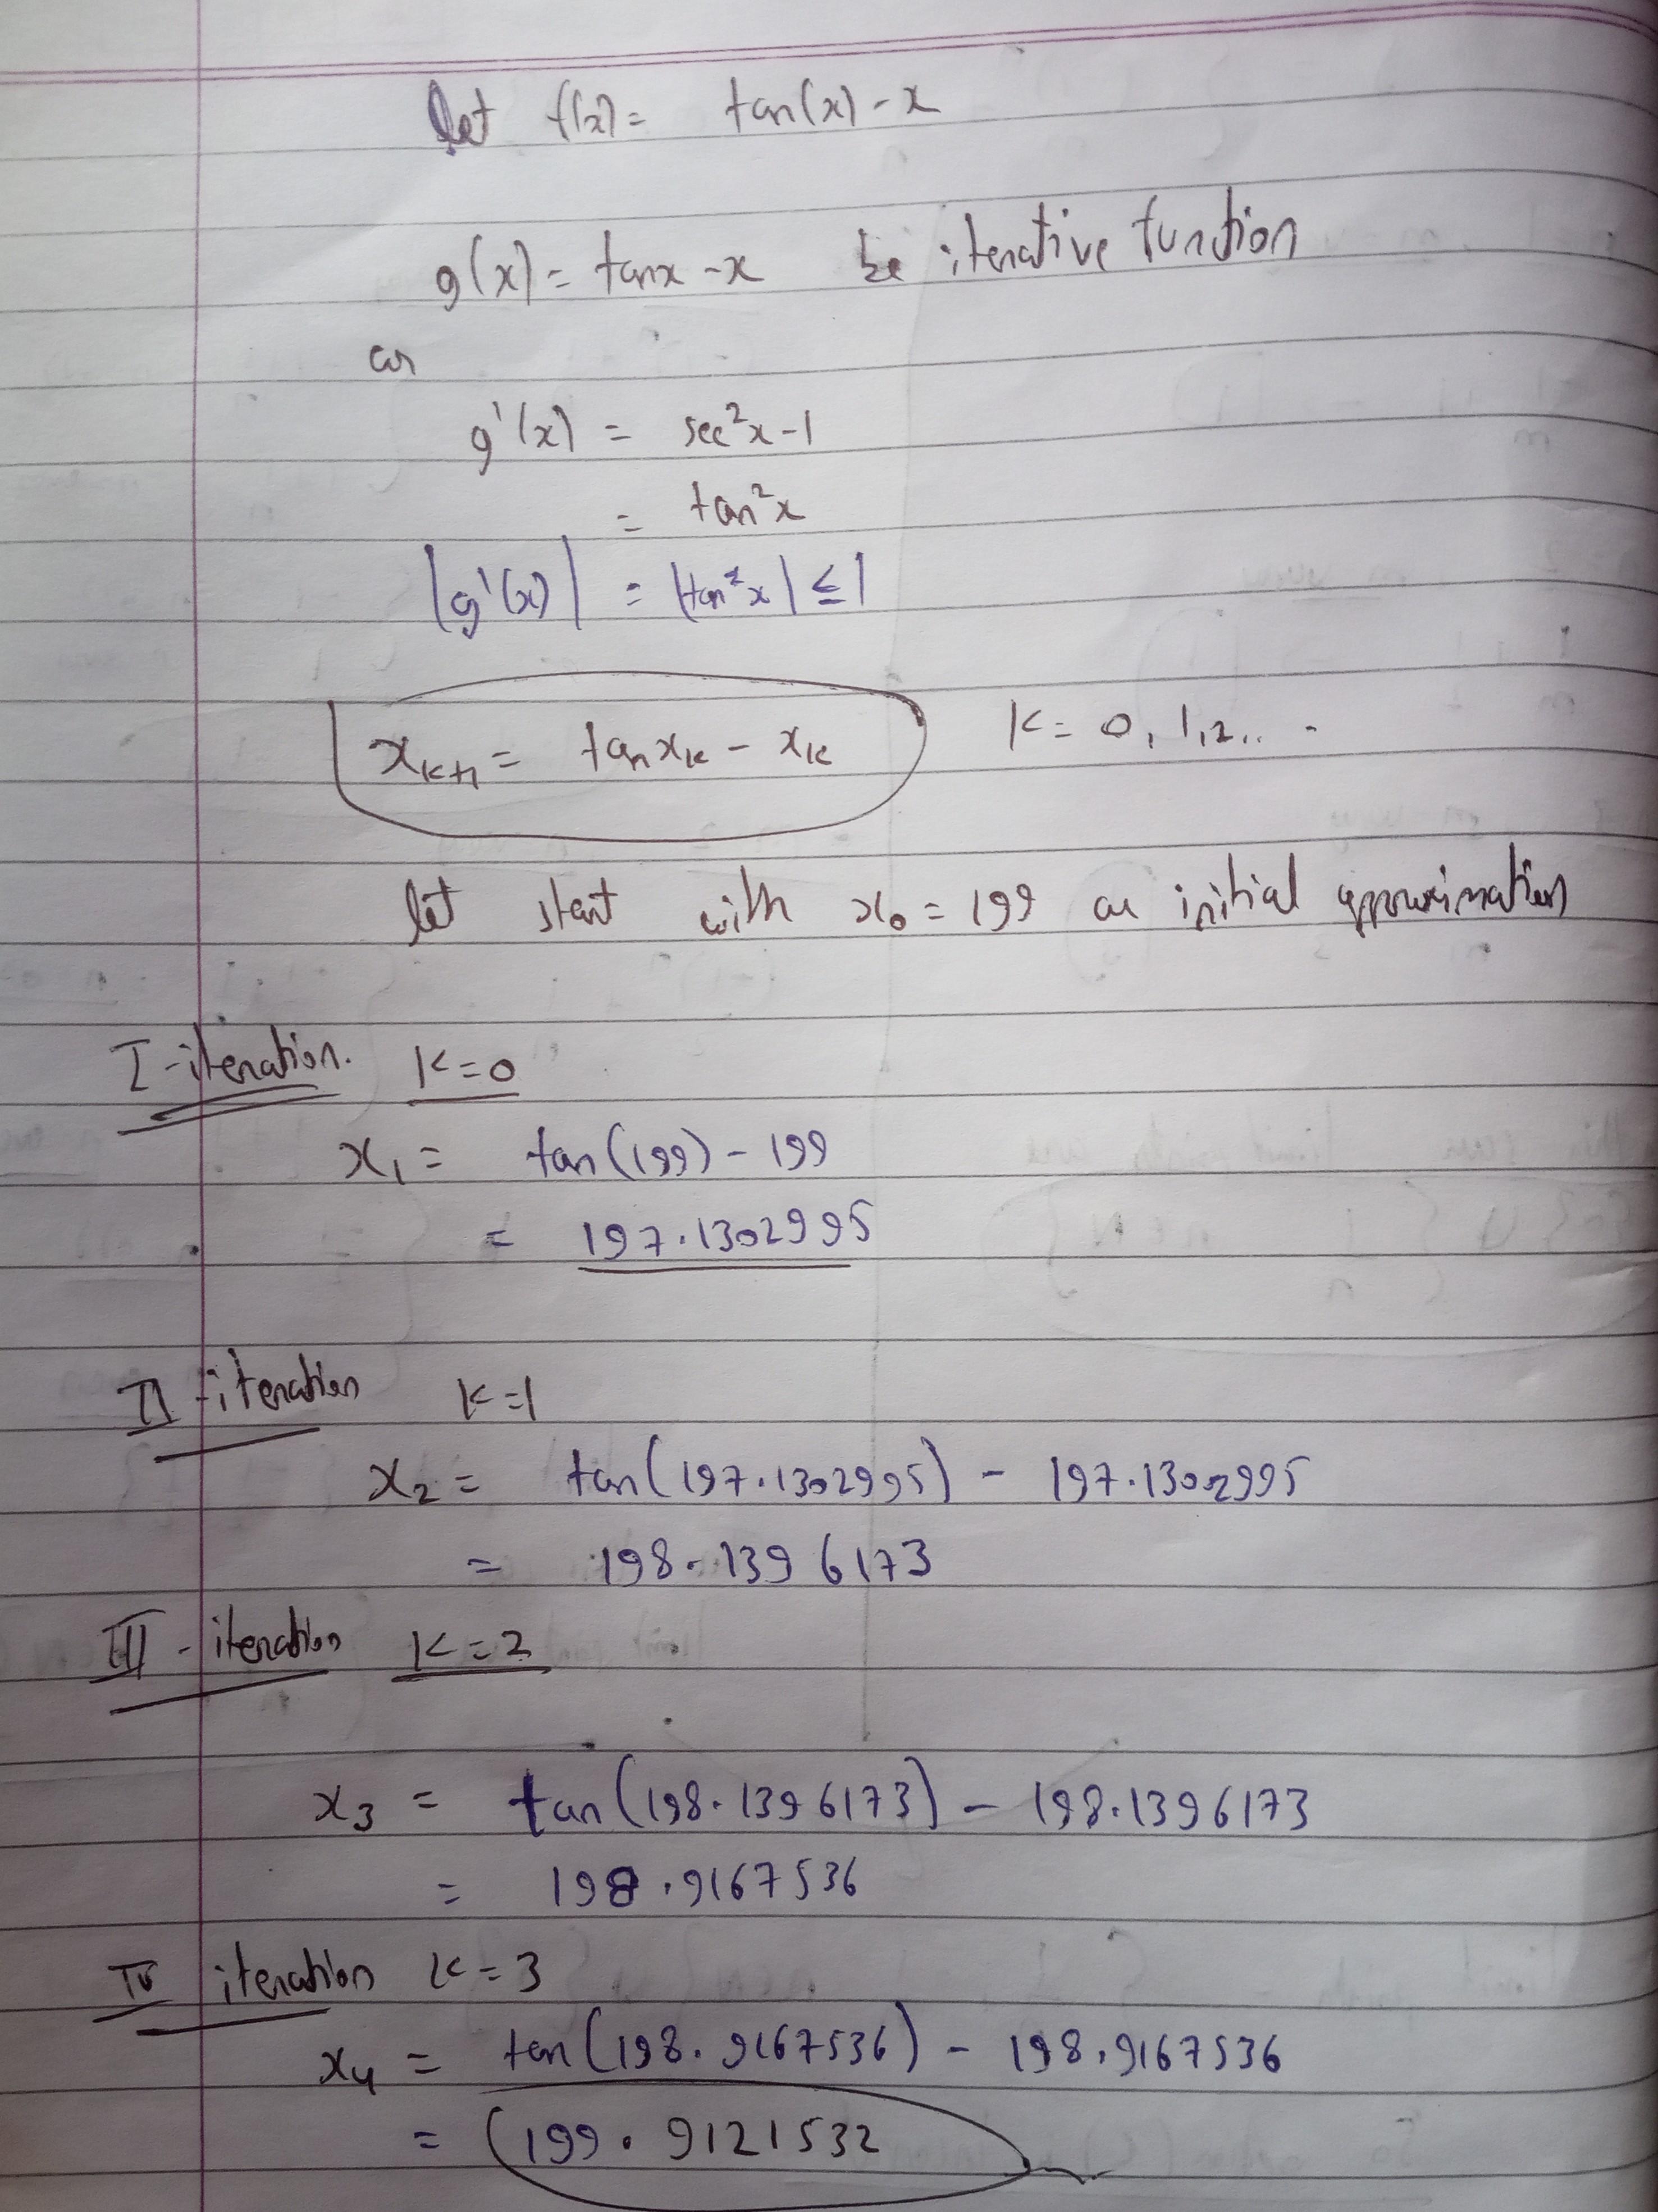 let f(x) = tan(x) - x
g(x) = tanx - x be iterative function
as
g'(x) = sec²x - 1
= tan²x
|g'(x)| = |tan²x| ≤ 1
xₖ₊₁ = tan xₖ - xₖ K = 0, 1, 2, . . .
let start with x₀ = 199 as initial approximation
I - iteration. K = 0
x₁ = tan(199) - 199
= 197.1302995
II - iteration K = 1
x₂ = tan(197.1302995) - 197.1302995
= 198.1396173
III - iteration K = 2
x₃ = tan(198.1396173) - 198.1396173
= 198.9167536
IV iteration K = 3
x₄ = tan(198.9167536) - 198.9167536
= 199.9121532